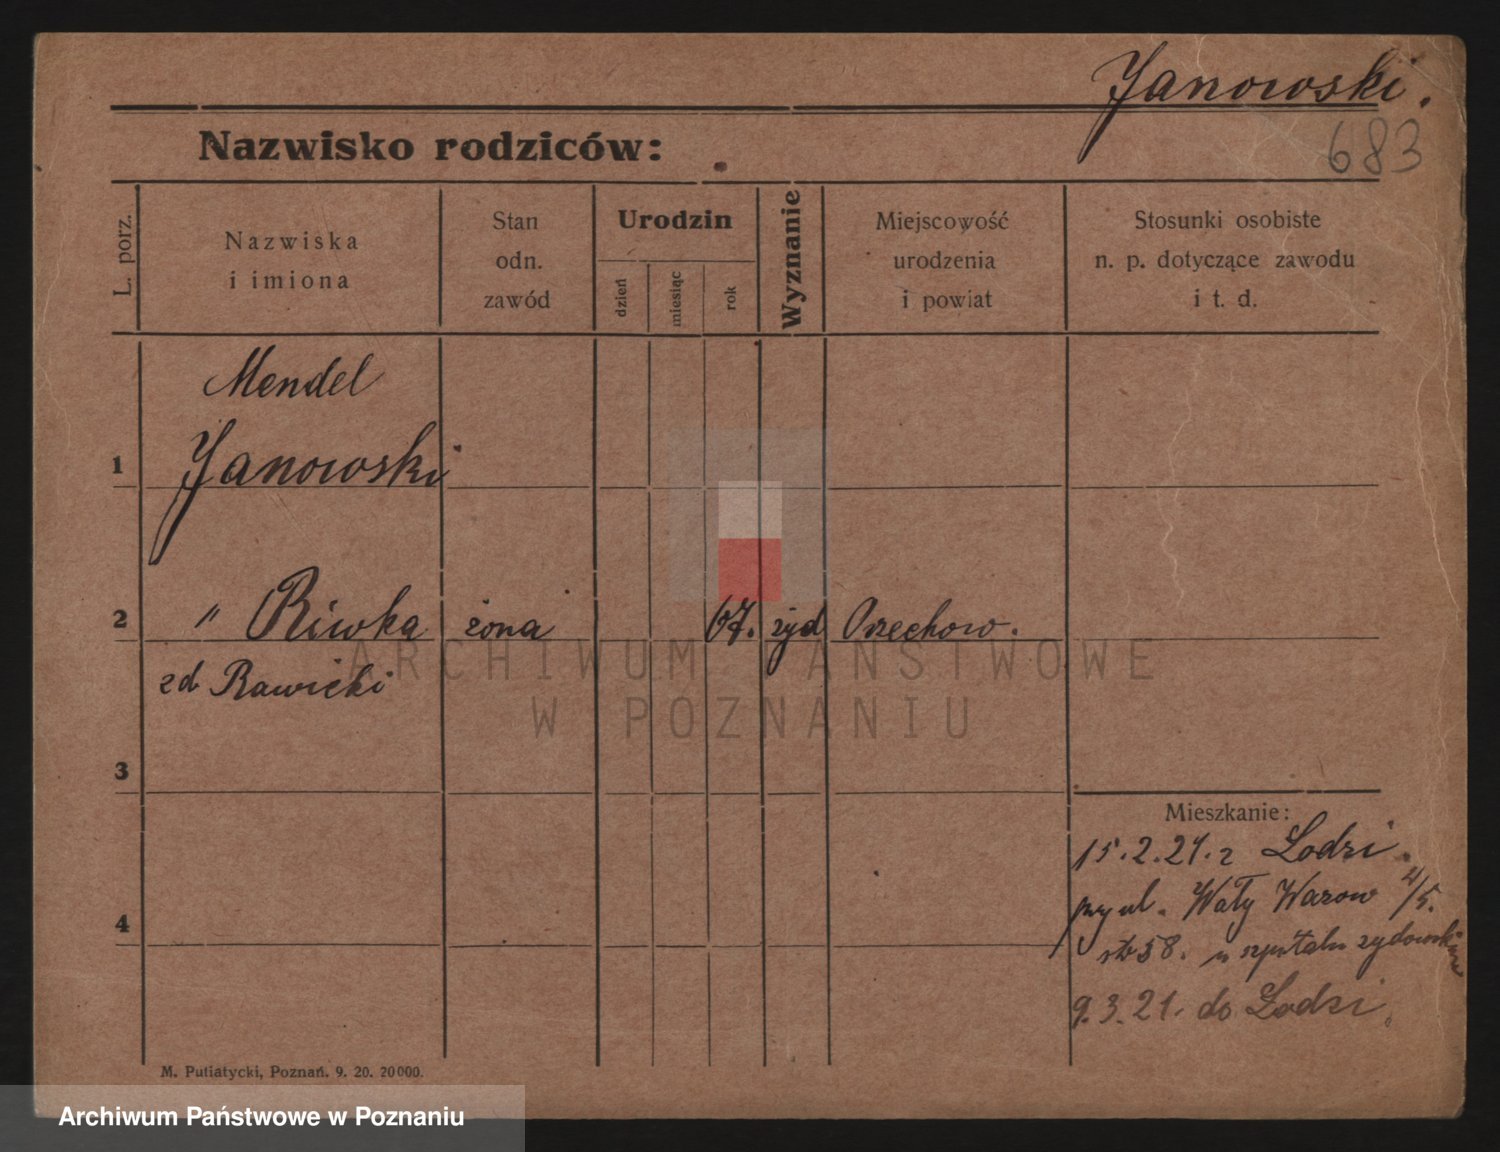 Janowski.
683
Nazwisko rodziców:
L. porz.
Nazwiska
i imiona
Stan
odn.
zawód
Urodzin
dzień
miesiąc
rok
Wyznanie
Miejscowość
urodzenia
i powiat
Stosunki osobiste
n. p. dotyczące zawodu
i t. d.
Mendel
1 Janowski
2 " Riwka żona 67. żyd Orzechow.
zd Rawicki
3
Mieszkanie:
15.2.21. z Lodzi.
przy ul. Wały Wazow 4/5.
4
str 58. w szpitalu zydowskim
9.3.21. do Lodzi.
M. Putiatycki, Poznań. 9. 20. 20000.
ARCHIWUM PAŃSTWOWE
W POZNANIU
Archiwum Państwowe w Poznaniu